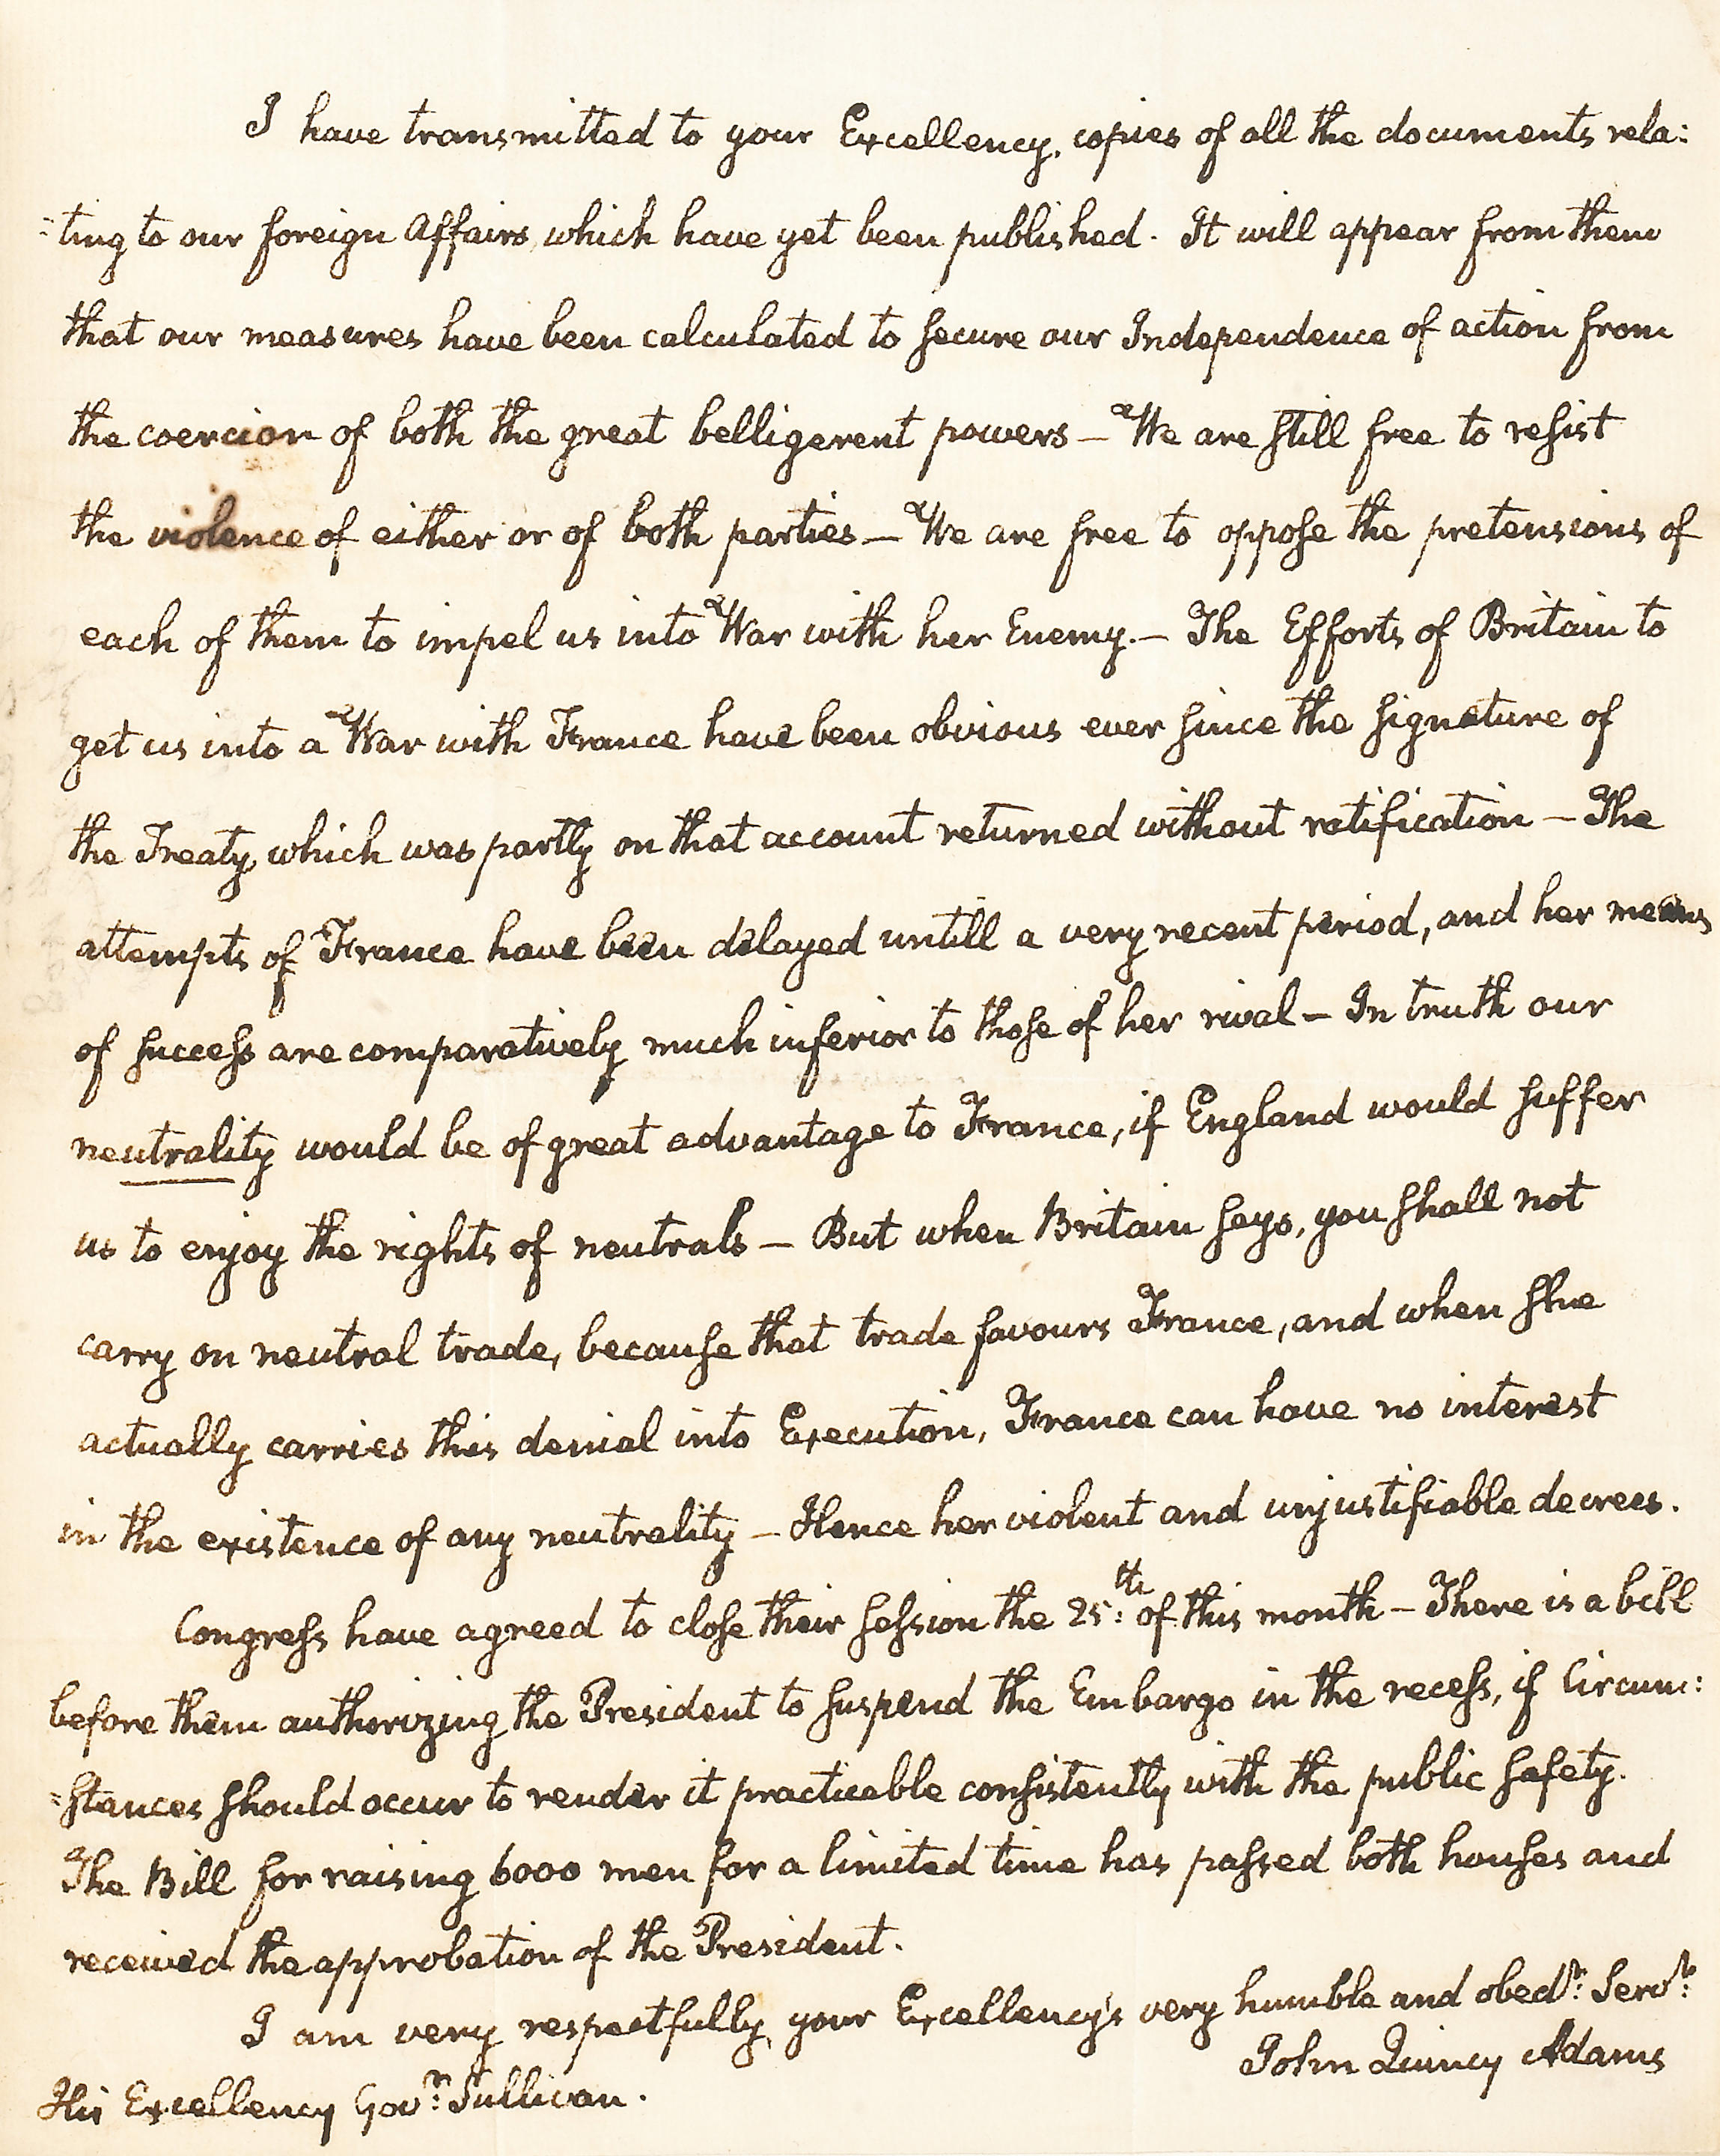 I have transmitted to your Excellency, copies of all the documents rela:
:ting to our foreign Affairs, which have yet been published. It will appear from them
that our measures have been calculated to secure our Independence of action from
the coercion of both the great belligerent powers — We are still free to resist
the violence of either or of both parties — We are free to oppose the pretensions of
each of them to impel us into War with her Enemy. — The Efforts of Britain to
get us into a War with France have been obvious ever since the signature of
the Treaty, which was partly on that account returned without ratification — The
attempts of France have been delayed untill a very recent period, and her means
of success are comparatively much inferior to those of her rival — In truth our
neutrality would be of great advantage to France, if England would suffer
us to enjoy the rights of neutrals — But when Britain says, you shall not
carry on neutral trade, because that trade favours France, and when she
actually carries this denial into Execution, France can have no interest
in the existence of any neutrality — Hence her violent and unjustifiable decrees.
Congress have agreed to close their session the 25:th of this month — There is a bill
before them authorizing the President to suspend the Embargo in the recess, if Circum:
:stances should occur to render it practicable consistently with the public safety.
The Bill for raising 6000 men for a limited time has passed both houses and
received the approbation of the President.
I am very respectfully, your Excellency's very humble and obedt: Servt:
John Quincy Adams
His Excellency Govr: Sullivan.